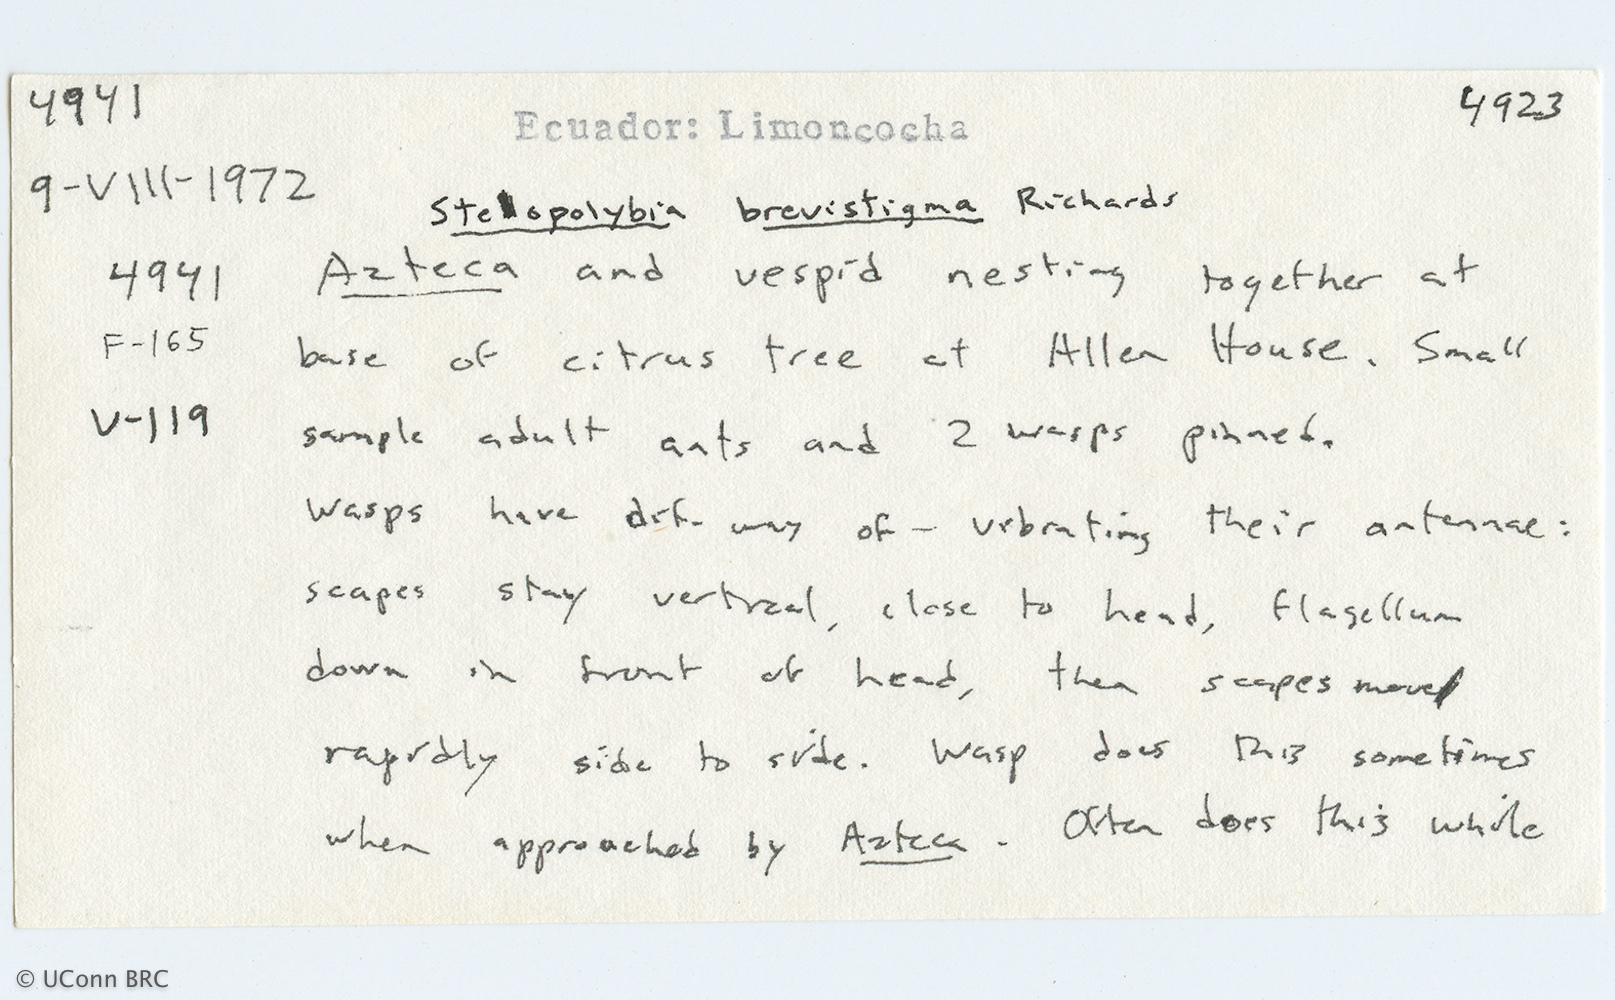 4941
4923
Ecuador: Limoncocha
9-VIII-1972
Stelopolybia brevistigma Richards
4941 Azteca and vespid nesting together at
F-165 base of citrus tree at Allen House. Small
V-119 sample adult ants and 2 wasps pinned.
Wasps have def. way of - vibrating their antennae:
scapes stay vertical, close to head, flagellum
down in front of head, then scapes move
rapidly side to side. Wasp does this sometimes
when approached by Azteca. Often does this while
© UConn BRC